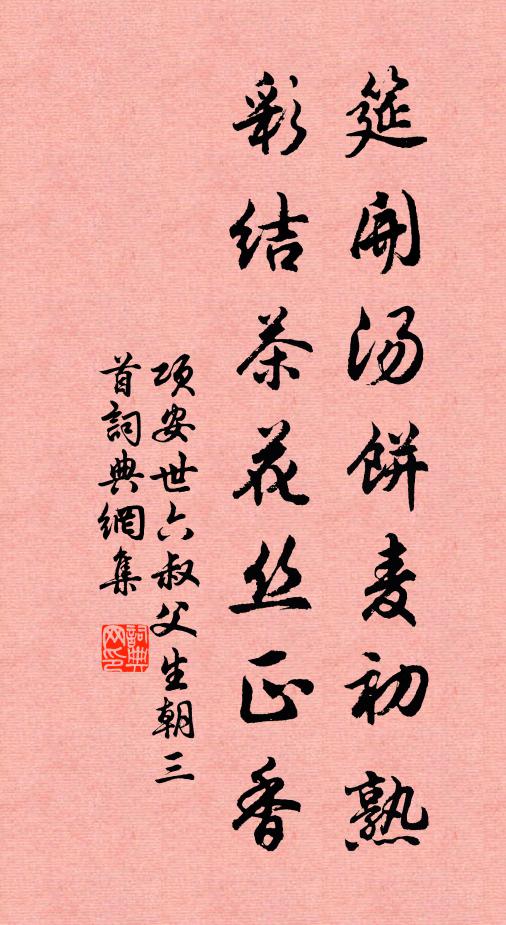 筵开汤餅麦初熟
彩结茶花丝正香
项安世六叔父生朝三
首詞典網集
詞典网印